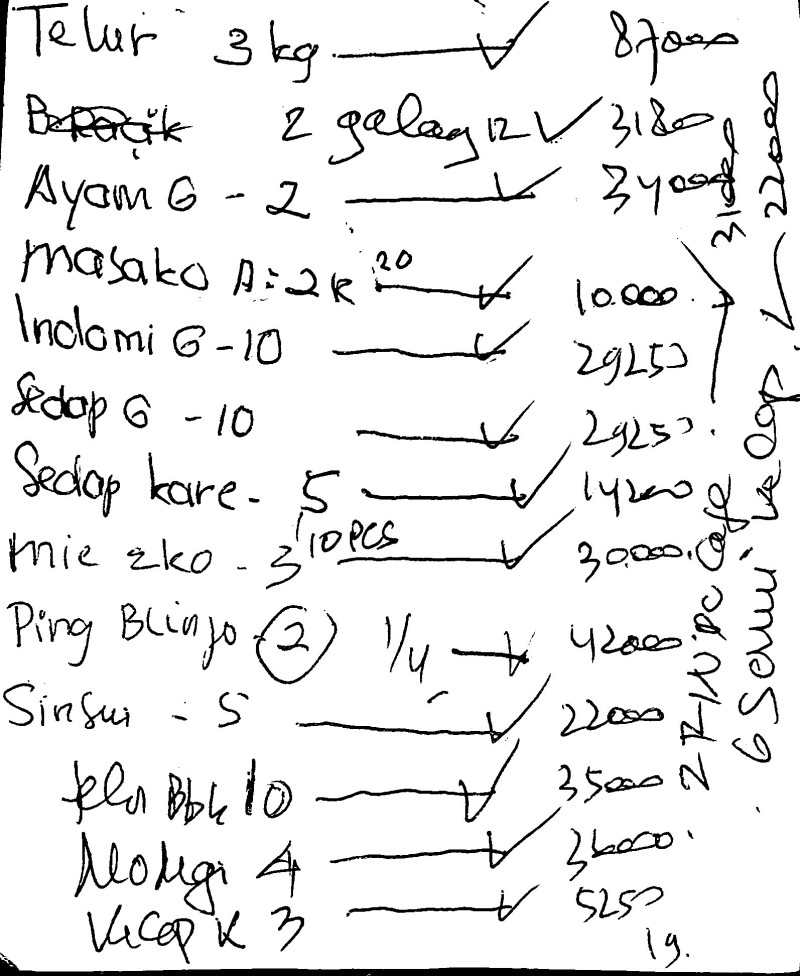 Telur 3 kg 87000
2 galag 12 31800
Ayam G - 2 34000
Masako A: 2 R 20 10.000
Indomi G - 10 29250
Sedap G - 10 29250
Sedap kare - 5 14200
mie eko - 3 10 pcs 30.000
Ping Blinjo - 2 1/4 42000
Sinsui - 5 22000
10 35000
4 36000
Kecap K 3 5250
19.
31000
22000